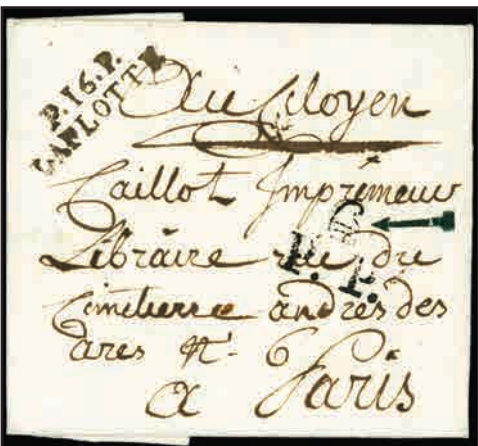 P.16.P.
LAFLOTTE
Au Citoyen
Caillot Imprimeur
Libraire rue du
P. P.
Cimetierre andres des
ares n° 6
a Paris